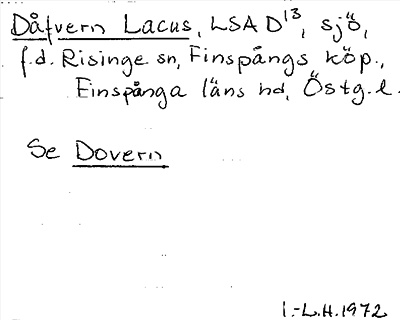 Dåfvern Lacus, LSA D¹³, sjö,
f.d. Risinge sn, Finspångs köp.,
Finspånga läns hd, Östg.l.
Se Dovern
I.-L.H.1972